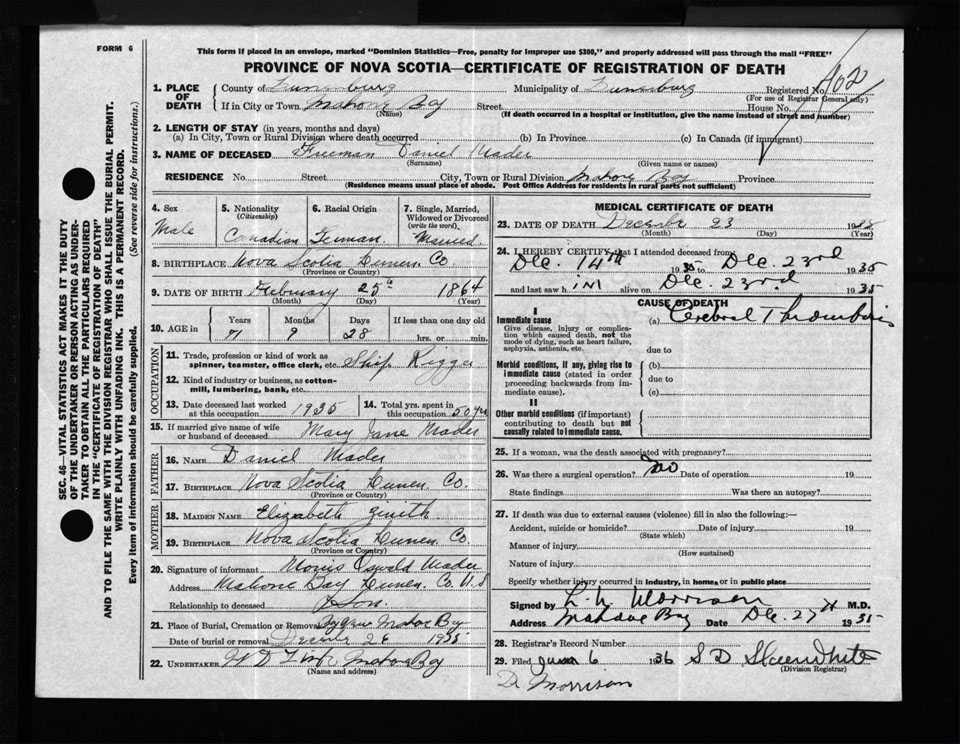 FORM 6
This form if placed in an envelope, marked "Dominion Statistics—Free, penalty for improper use $300," and properly addressed will pass through the mail "FREE"
PROVINCE OF NOVA SCOTIA—CERTIFICATE OF REGISTRATION OF DEATH
1. PLACE OF DEATH
County of Lunenburg Municipality of Lunenburg Registered No. 402
(For use of Registrar General only)
If in City or Town Mahone Bay Street House No.
(Name) (If death occurred in a hospital or institution, give the name instead of street and number)
2. LENGTH OF STAY (in years, months and days)
(a) In City, Town or Rural Division where death occurred (b) In Province (c) In Canada (if immigrant)
3. NAME OF DECEASED Freeman Daniel Mader
(Surname) (Given name or names)
RESIDENCE No. Street City, Town or Rural Division Mahone Bay Province
(Residence means usual place of abode. Post Office Address for residents in rural parts not sufficient)
4. Sex
Male
5. Nationality
(Citizenship)
Canadian
6. Racial Origin
German
7. Single, Married, Widowed or Divorced
(write the word)
Married
8. BIRTHPLACE Nova Scotia Lunen. Co.
(Province or Country)
9. DATE OF BIRTH February 25 1864
(Month) (Day) (Year)
10. AGE in Years Months Days If less than one day old
71 9 28 hrs. or min.
OCCUPATION
11. Trade, profession or kind of work as
spinner, teamster, office clerk, etc. Ship Rigger
12. Kind of industry or business, as cotton-
mill, lumbering, bank, etc.
13. Date deceased last worked
at this occupation 1935
14. Total yrs. spent in
this occupation 50 yrs
15. If married give name of wife
or husband of deceased Mary Jane Mader
FATHER
16. NAME Daniel Mader
17. BIRTHPLACE Nova Scotia Lunen. Co.
(Province or Country)
MOTHER
18. MAIDEN NAME Elizabeth
19. BIRTHPLACE Nova Scotia Lunen. Co.
(Province or Country)
20. Signature of informant Morris Oswald Mader
Address Mahone Bay Lunen. Co. N.S
Relationship to deceased Son
21. Place of Burial, Cremation or Removal Mahone Bay
Date of burial or removal December 26 1935
22. UNDERTAKER Mahone Bay
(Name and address)
MEDICAL CERTIFICATE OF DEATH
23. DATE OF DEATH December 23 19
(Month) (Day) (Year)
24. I HEREBY CERTIFY that I attended deceased from
Dec. 14th 19 to Dec. 23rd 1935
and last saw him alive on Dec. 23rd 1935
CAUSE OF DEATH
I
Immediate cause
Give disease, injury or complica-
tion which caused death, not the
mode of dying, such as heart failure,
asphyxia, asthenia, etc.
(a) Cerebral Thrombosis
due to
Morbid conditions, if any, giving rise to
immediate cause (stated in order
proceeding backwards from im-
mediate cause).
(b)
due to
(c)
II
Other morbid conditions (if important)
contributing to death but not
causally related to immediate cause.
25. If a woman, was the death associated with pregnancy?
26. Was there a surgical operation? No Date of operation 19
State findings Was there an autopsy?
27. If death was due to external causes (violence) fill in also the following:—
Accident, suicide or homicide? Date of injury 19
(State which)
Manner of injury
(How sustained)
Nature of injury
Specify whether injury occurred in industry, in home, or in public place
Signed by Morrison M.D.
Address Mahone Bay Date Dec. 27 1935
28. Registrar's Record Number
29. Filed 6 1936 S D
(Division Registrar)
Dr Morrison
SEC. 46—VITAL STATISTICS ACT MAKES IT THE DUTY
OF THE UNDERTAKER OR PERSON ACTING AS UNDER-
TAKER TO OBTAIN ALL THE PARTICULARS REQUIRED
IN THE "CERTIFICATE OF REGISTRATION OF DEATH"
AND TO FILE THE SAME WITH THE DIVISION REGISTRAR WHO SHALL ISSUE THE BURIAL PERMIT.
WRITE PLAINLY WITH UNFADING INK. THIS IS A PERMANENT RECORD.
Every item of information should be carefully supplied. (See reverse side for instructions.)